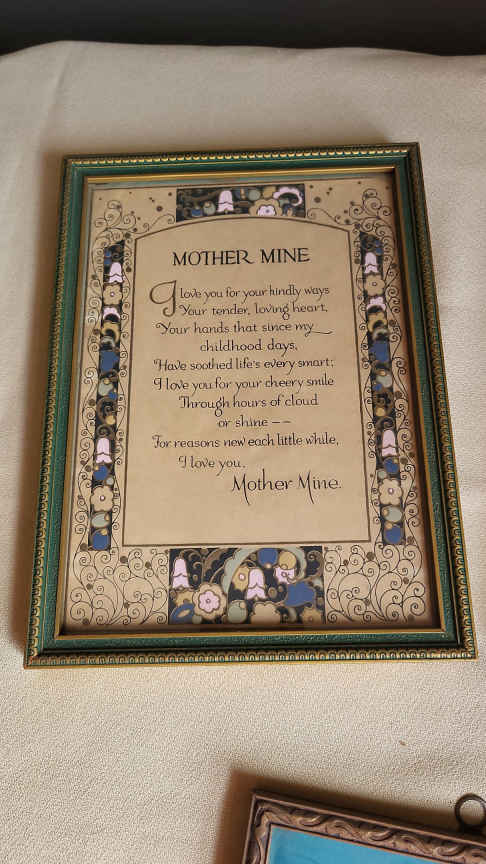 MOTHER MINE
I love you for your kindly ways
Your tender, loving heart,
Your hands that since my
childhood days,
Have soothed life's every smart;
I love you for your cheery smile
Through hours of cloud
or shine --
For reasons new each little while,
I love you,
Mother Mine.